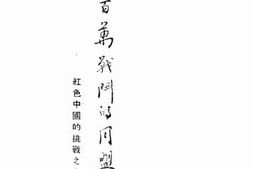 百萬戰鬥的同盟
紅色中國的挑戰之